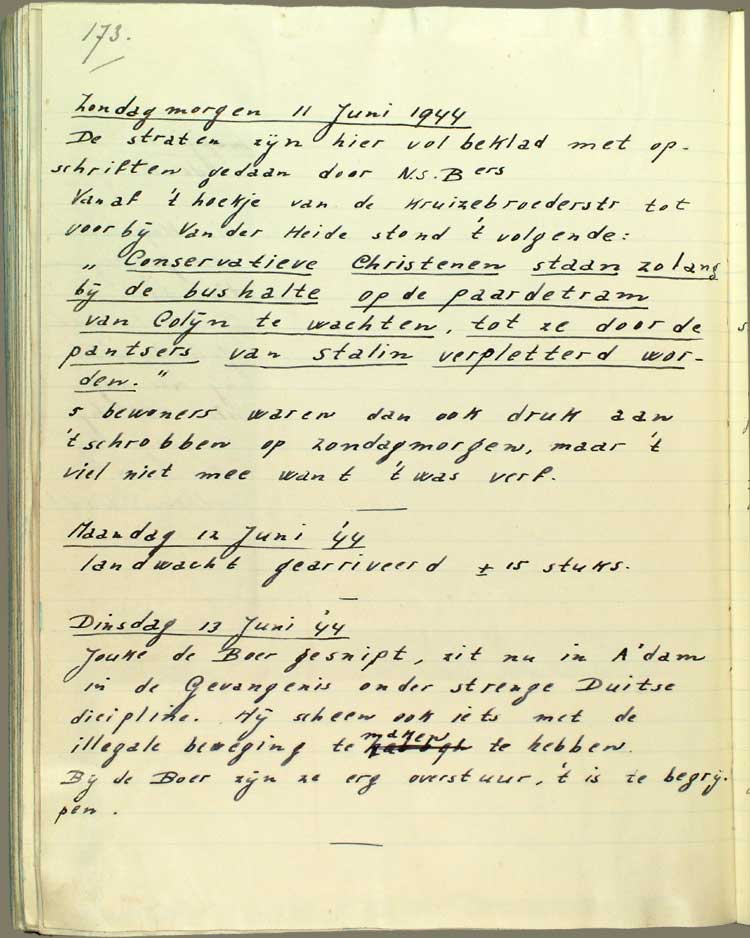 173.
Zondagmorgen 11 Juni 1944
De straten zijn hier vol beklad met op-
schriften gedaan door N.S.Bers
Vanaf 't hoekje van de Kruizebroederstr tot
voorbij Van der Heide stond 't volgende:
„ Conservatieve Christenen staan zolang
bij de bushalte op de paardetram
van Colijn te wachten, tot ze door de
pantsers van Stalin verpletterd wor-
den. "
s bewoners waren dan ook druk aan
't schrobben op zondagmorgen, maar 't
viel niet mee want 't was verf.
Maandag 12 Juni '44
landwacht gearriveerd ± 15 stuks.
Dinsdag 13 Juni '44
Jouke de Boer gesnipt, zit nu in A'dam
in de Gevangenis onder strenge Duitse
dicipline. Hij scheen ook iets met de
illegale beweging te maken te hebben.
Bij de Boer zijn ze erg overstuur, 't is te begrij-
pen.